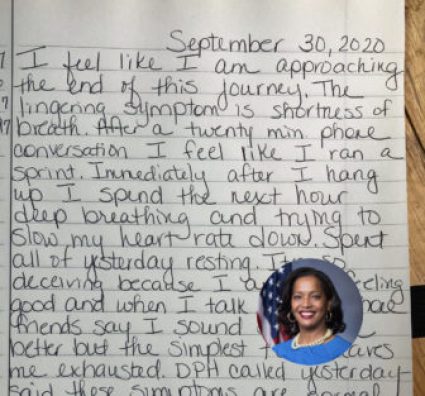 September 30, 2020
I feel like I am approaching
the end of this journey. The
lingering symptom is shortness of
breath. After a twenty min. phone
conversation I feel like I ran a
sprint. Immediately after I hang
up I spend the next hour
deep breathing and trying to
slow my heart rate down. Spent
all of yesterday resting.
deceiving because I
good and when I talk
friends say I sound
better but the simplest
me exhausted. DPH called yesterday
said these symptoms are normal